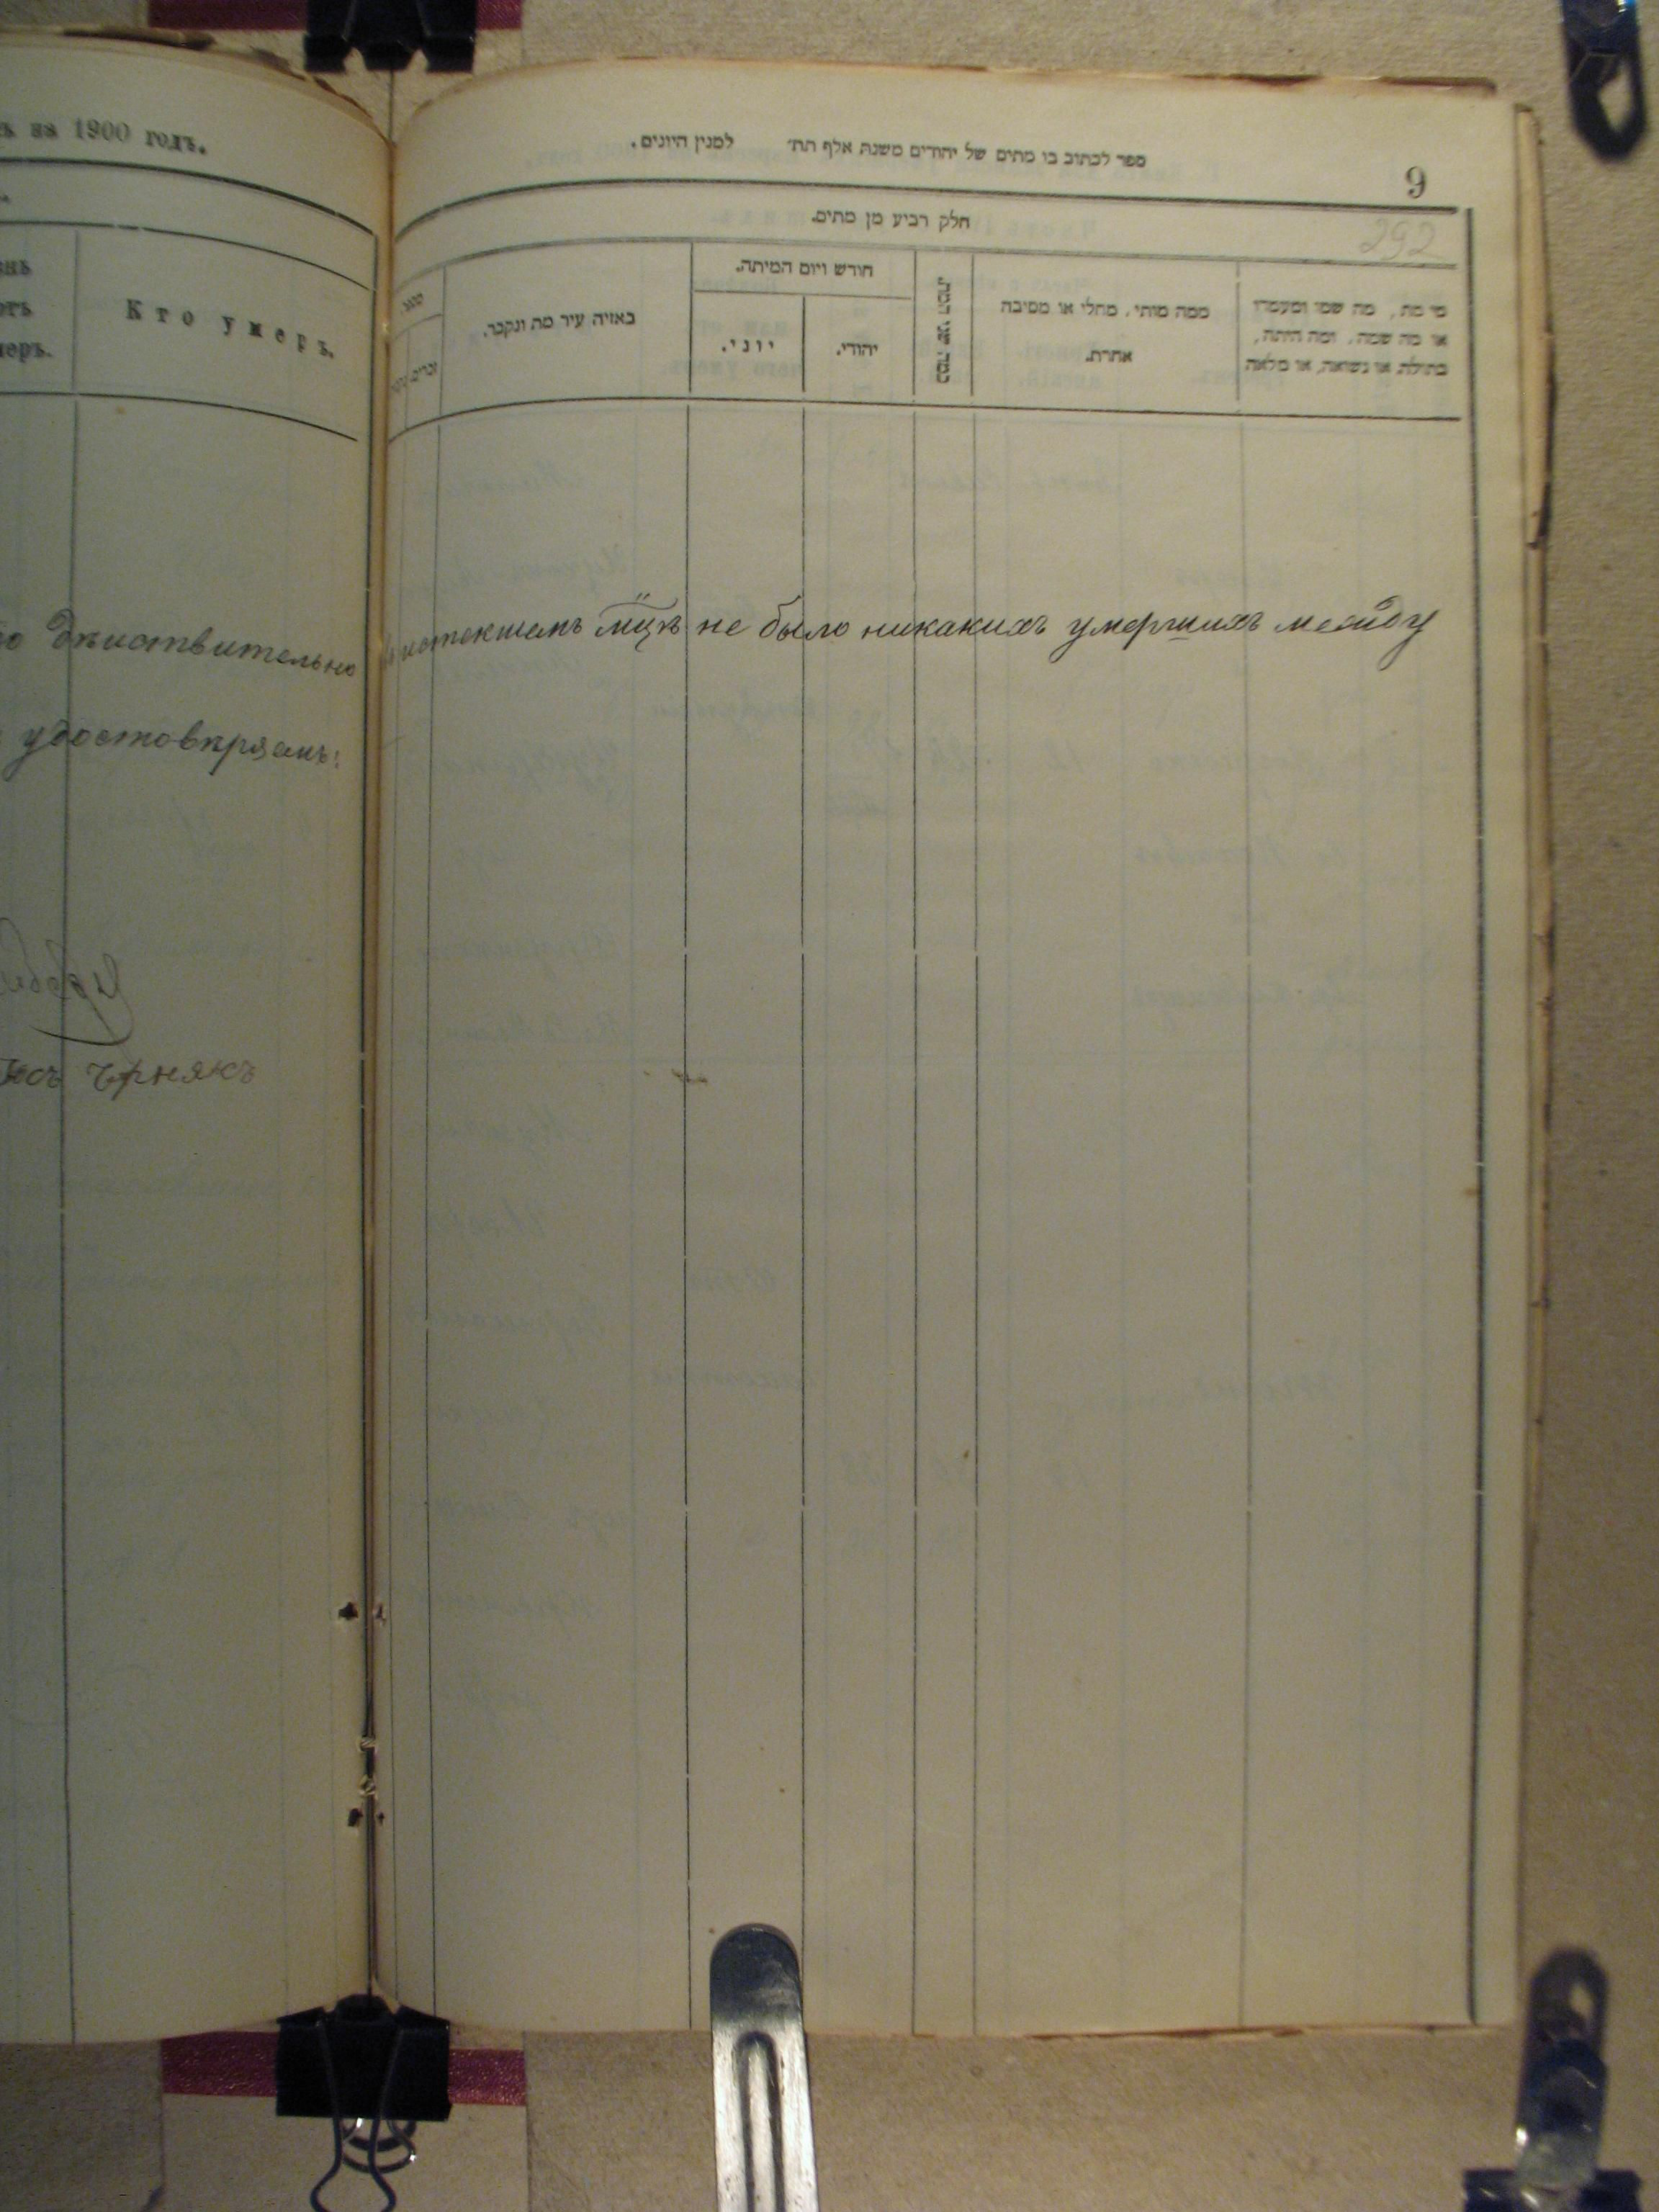 за 1900 годъ.
Кто умеръ.
дѣиствительно
удостовѣряемъ:
Чрнякъ
ספר לכתוב בו מתים של יהודים משנת אלף תת׳ למנין היונים.
9
292
חלק רביע מן מתים.
מי מת, מה שמו ומעמדו
או מה שמה, ומה היתה,
בתולה, או נשואה, או מלאה
ממה מותי, מחלי או מסיבה
אחרת.
חודש ויום המיתה.
יהודי.
יוני.
באיזה עיר מת ונקבר.
זכרים.
истекшемъ мцѣ не было никакихъ умершихъ между